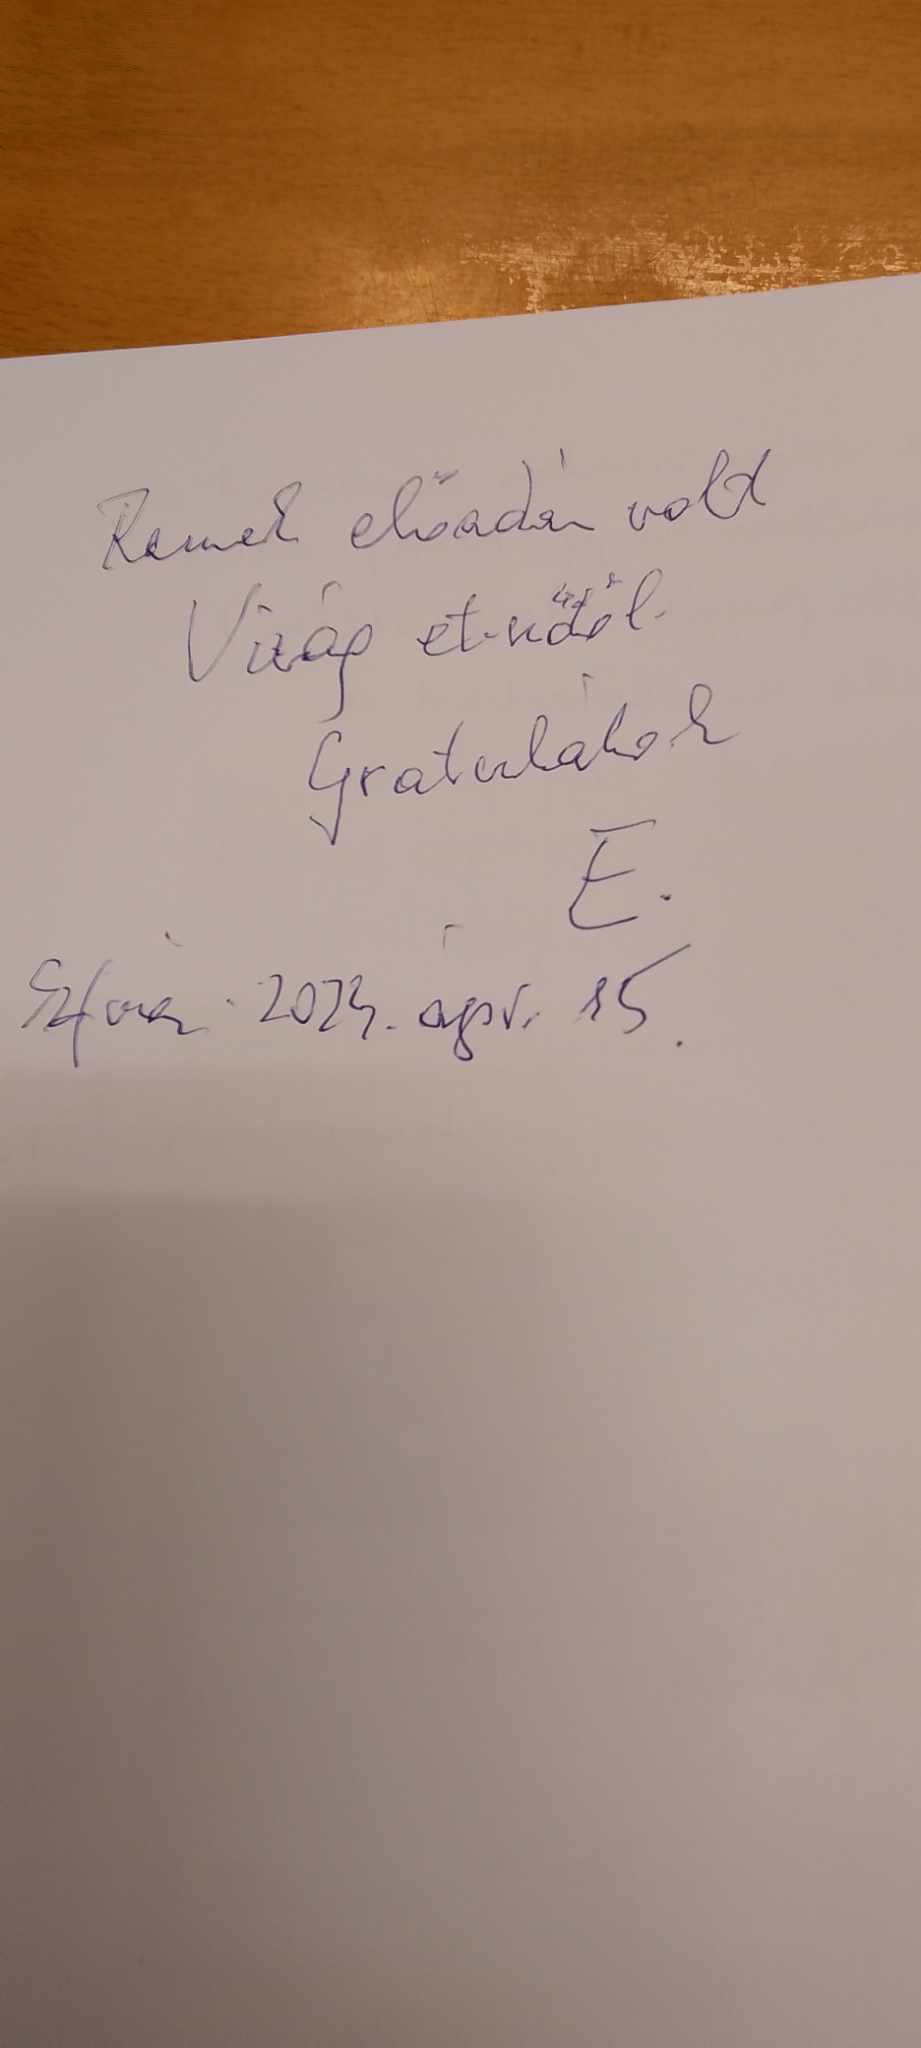 Remek előadás volt
Virág et.-nőtől.
Gratulálok
E.
Szfvár. 2023. ápr. 15.